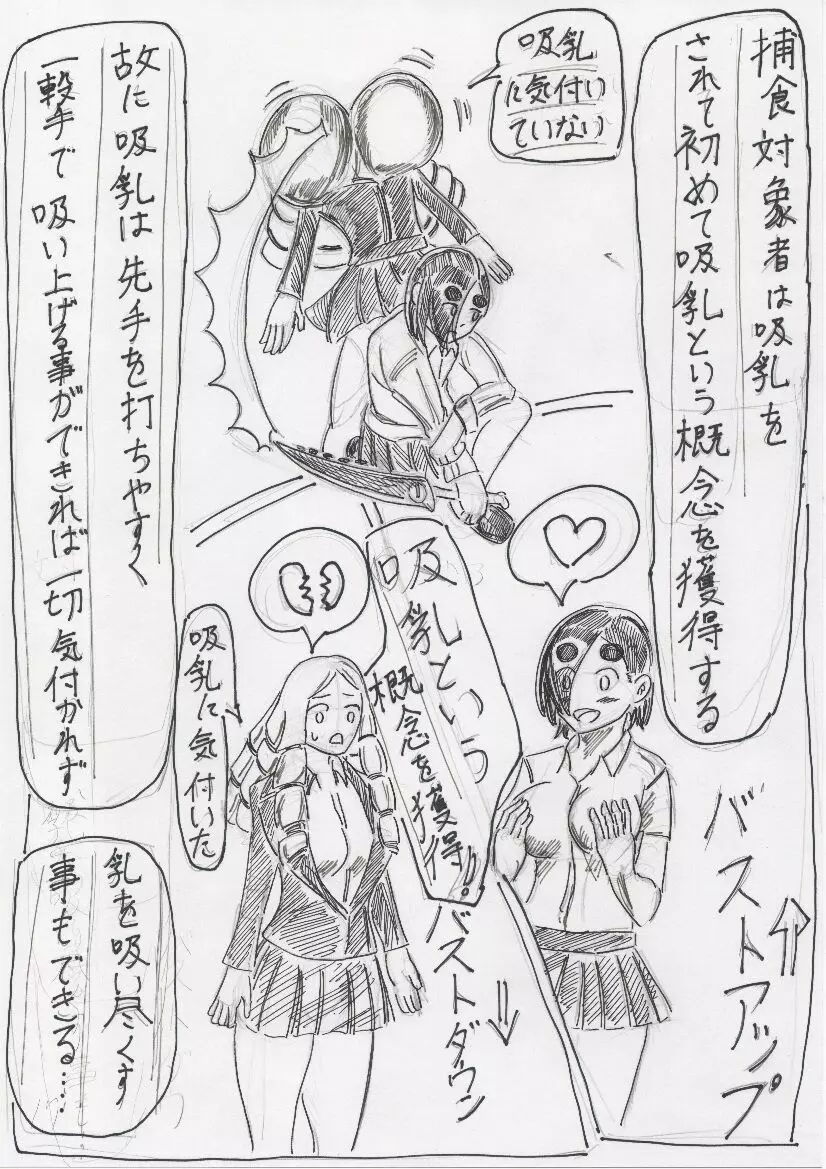 捕食対象者は吸乳を
されて初めて吸乳という概念を獲得する
吸乳
に気付い
ていない
故に吸乳は先手を打ちやすく
一撃手で吸い上げる事ができれば一切気付かれず
乳を吸い尽くす
事もできる……
バストアップ
吸乳という
概念を獲得!!
バストダウン
吸乳に気付いた